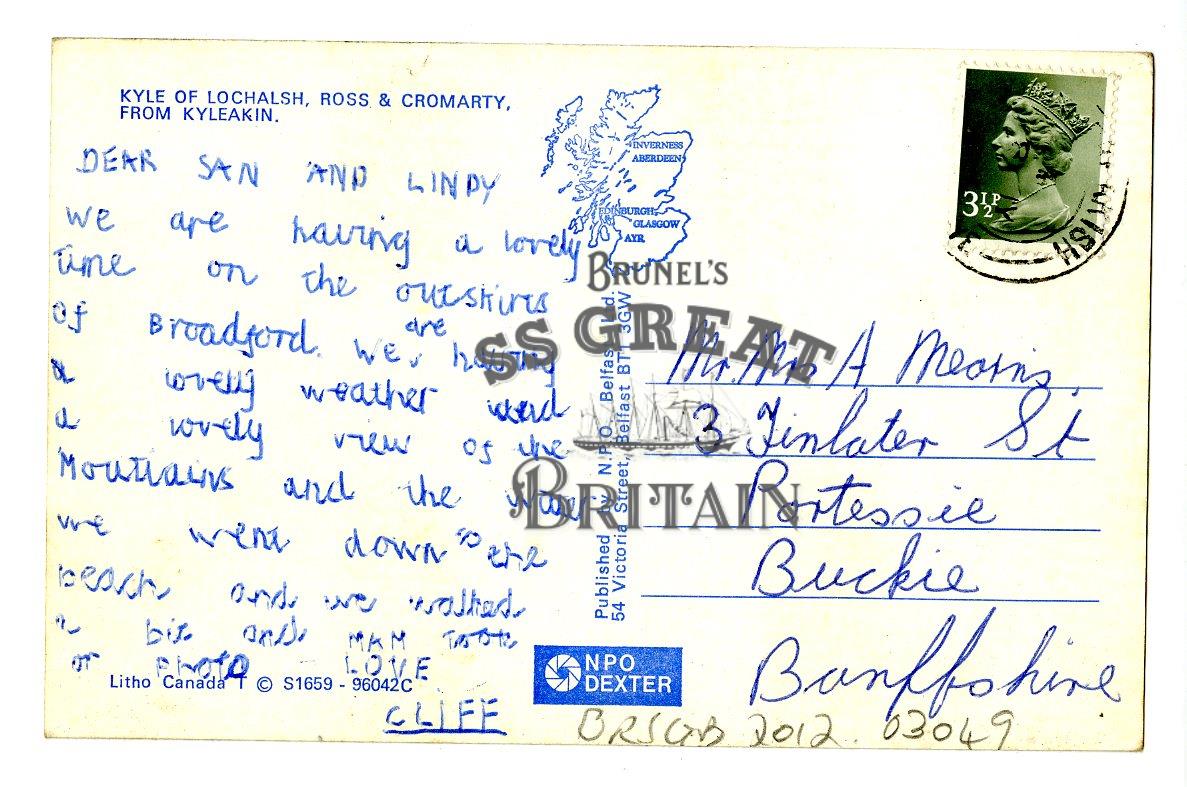 KYLE OF LOCHALSH, ROSS & CROMARTY,
FROM KYLEAKIN.
DEAR SAN AND LINDY
we are having a lovely
time on the outskirts
of Broadford. we are having
a lovely weather and
a lovely view of the
Mountains and the water
we went down to the
beach and we walked
a bit and MAM TOOK
or PHOTO LOVE
CLIFF
Litho Canada T © S1659 - 96042C
INVERNESS
ABERDEEN
EDINBURGH
GLASGOW
AYR
Published by N.P.O. Belfast Ltd.
54 Victoria Street, Belfast BT1 3GW
NPO
DEXTER
3½P
Mr. Mrs A Mearns,
3 Finlater St
Portessie
Buckie
Banffshire
BRSGB 2012. 03049
BRUNEL'S
SS GREAT
BRITAIN